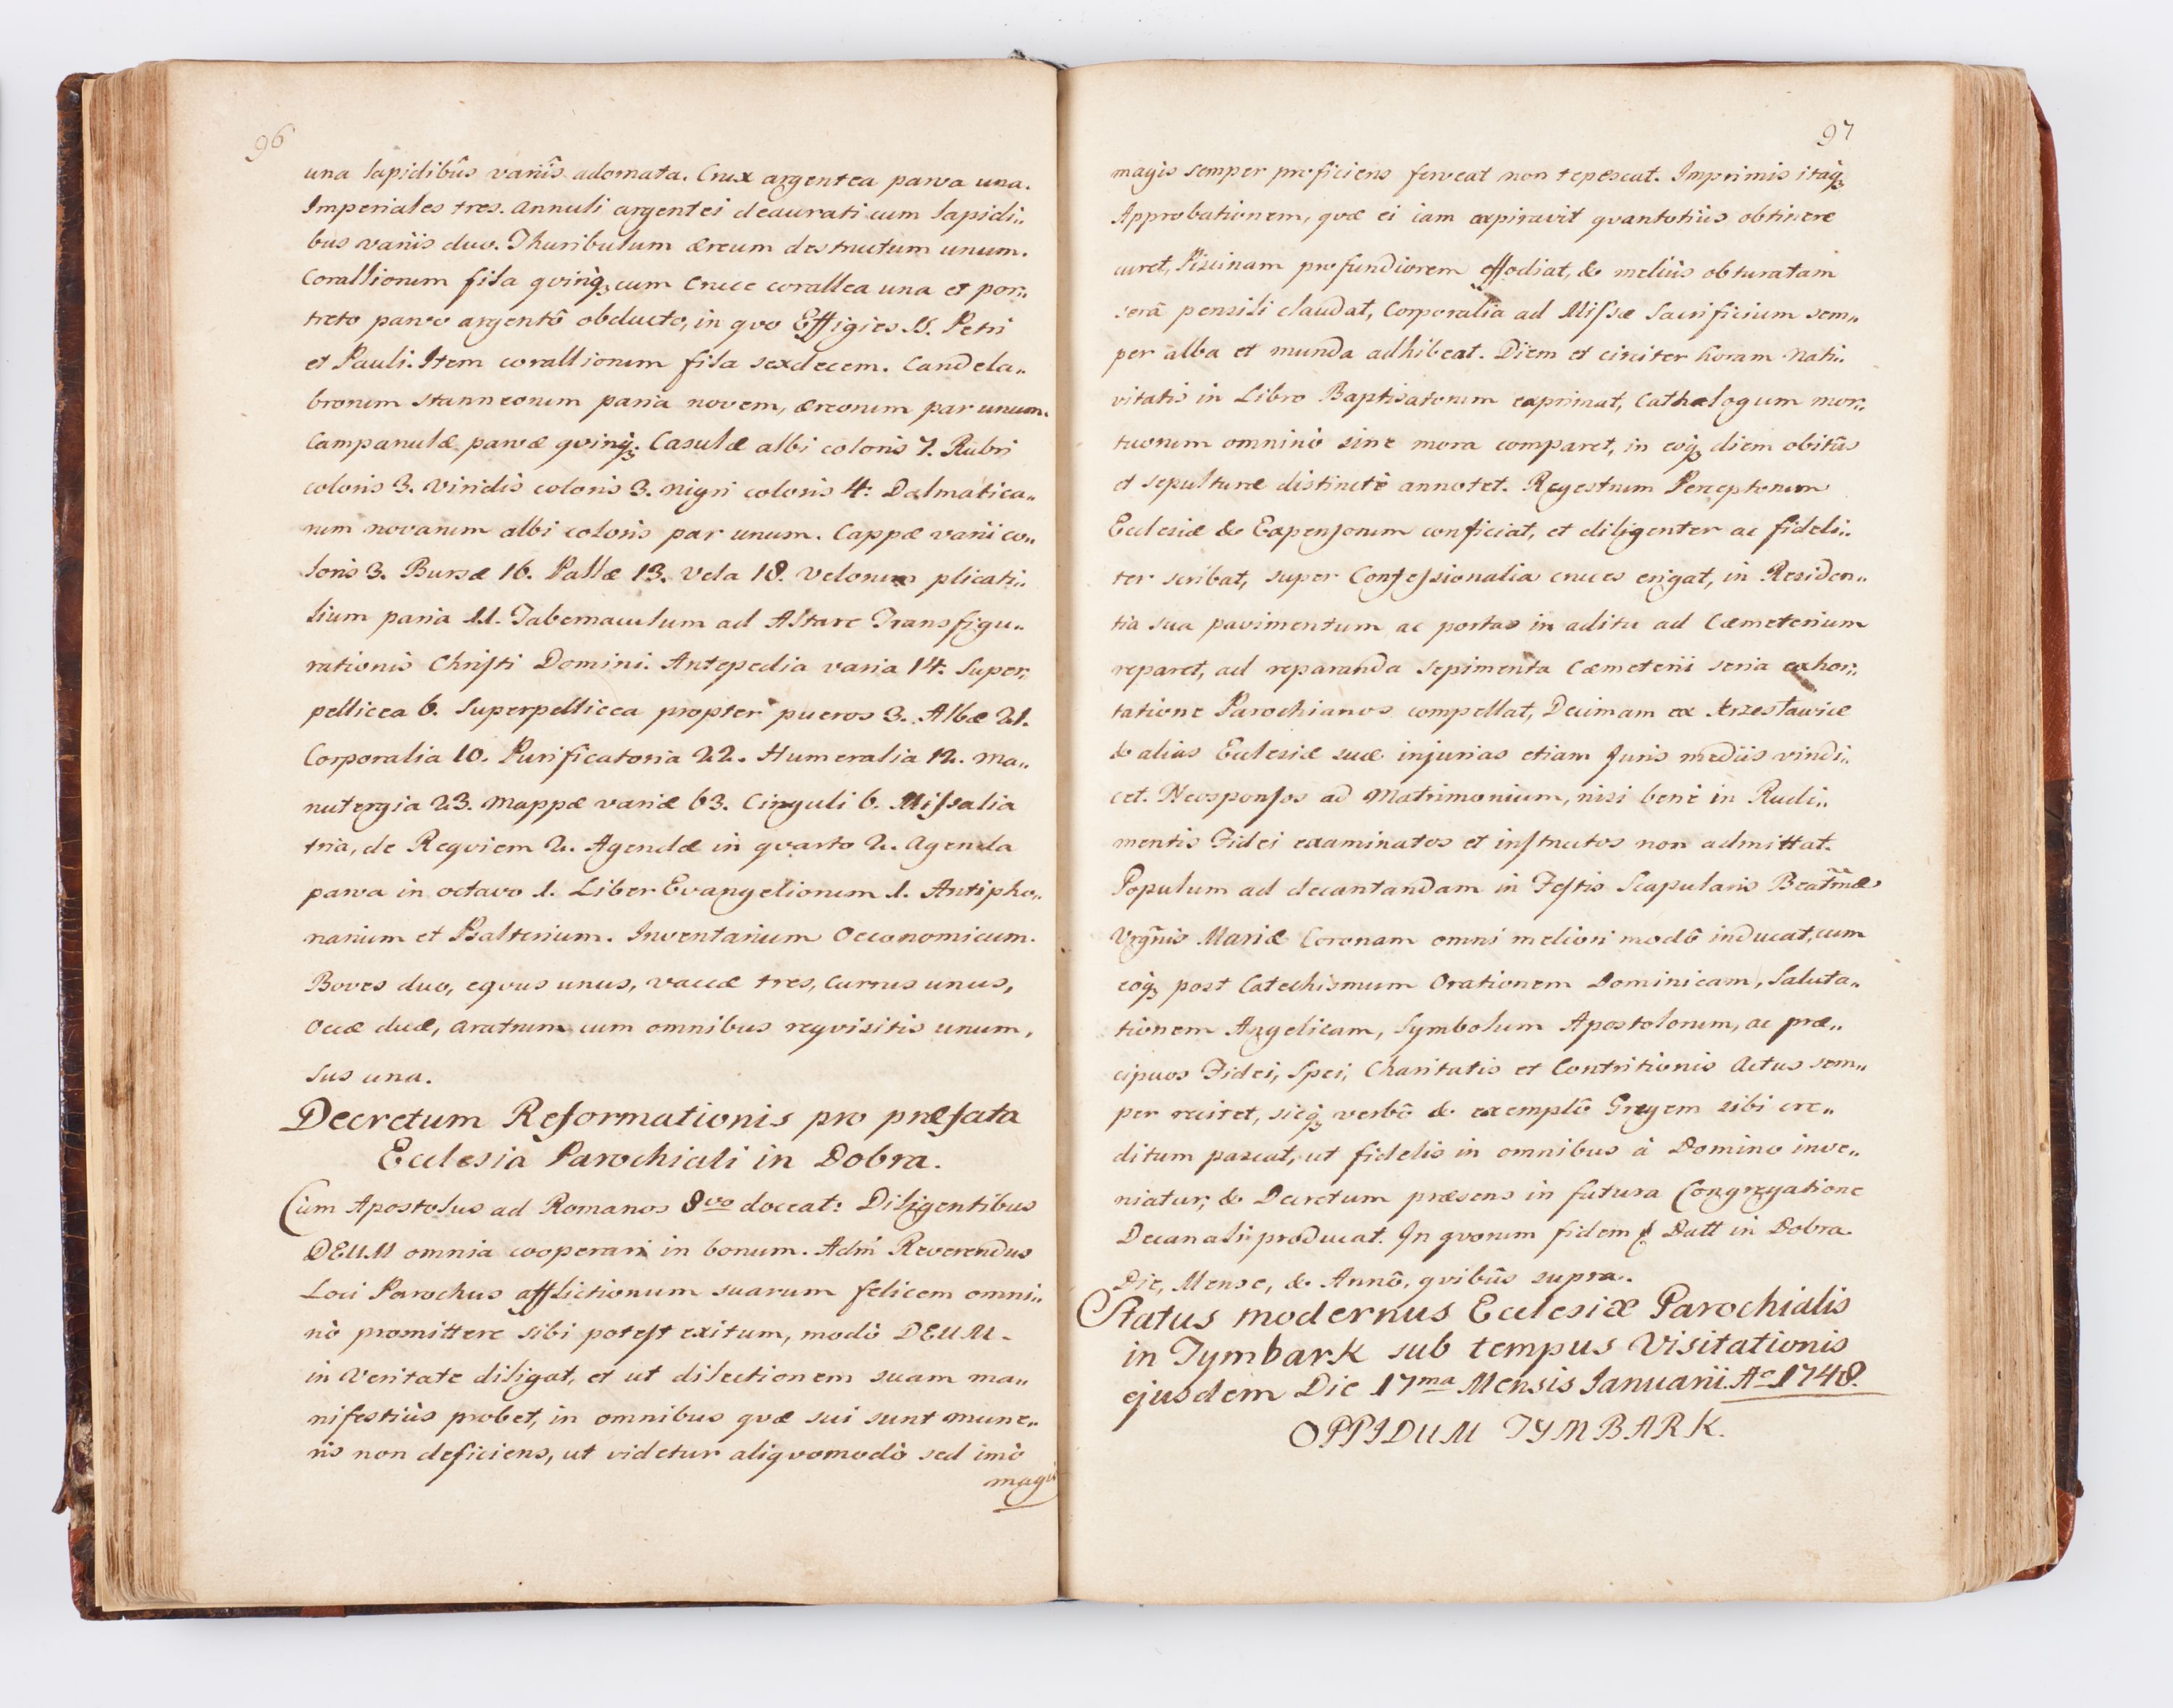 96
una lapidibûs variîs adornata. Crux argentea parva una.
Imperiales tres. Annuli argentei deaurati cum lapidi„
bus variis duo. Thuribulum æreum destructum unum.
Corallionum fila qvinq́ꝫ cum Cruce corallea una et por„
treto parvo argentô obducto, in qvo Effigies SS. Petri
et Pauli. Item corallionum fila sexdecem. Candela„
brorum stanneorum paria novem, æreorum par unum.
Campanulæ parvæ qvinq́ꝫ. Casulæ albi coloris 7. Rubri
coloris 3. Viridis coloris 3. nigri coloris 4: Dalmatica„
rum novarum albi coloris par unum. Cappæ varii co„
loris 3. Bursæ 16. Pallæ 13. Vela 18. Velorum plicati„
lium paria 11. Tabernaculum ad Altare Transfigu„
rationis Chriſti Domini. Antepedia varia 14. Super„
pellicea 6. Superpellicea propter pueros 3. Albæ 21.
Corporalia 10. Purificatoria 22. Humeralia 12. Ma„
nutergia 23. Mappæ variæ 63. Cinguli 6. Miſsalia
tria, de Reqviem 2. Agendæ in qvarto 2. Agenda
parva in octavo 1. Liber Evangelionum 1. Antipho„
narium et Psalterium. Inventarium Oeconomicum.
Boves duo, eqvus unus, vaccæ tres, Currus unus,
Occæ duæ, aratrum cum omnibus reqvisitis unum,
sus una.
Decretum Reformationis pro præfata
Ecclesia Parochiali in Dobra.
Cùm Apostolus ad Romanos 8vo doceat: Diligentibus
DEUM omnia cooperari in bonum. Adm̃ Reverendus
Loci Parochus afflictionum suarum felicem omni„
nò promittere sibi poteſt exitum, modò DEUM
in Veritate diligat, et ut dilectionem suam ma„
nifestiùs probet, in omnibus qvæ sui sunt mune„
ris non deficiens, ut videtur aliqvomodò sed imò
magis
97
magis semper proficiens ferveat non tepescat. Imprimis itaq́ꝫ
Approbationem, qvæ ei iam expiravit qvantotiùs obtinere
curet, Piscinam profundiorem effodiat, & meliùs obturatam
serâ pensili claudat, Corporalia ad Miſsæ Sacrificium sem„
per alba et munda adhibeat. Diem et circiter horam Nati„
vitatis in Libro Baptisatorum exprimat, Cathalogum mor„
tuorum omninò sine mora comparet, in eoq́ꝫ diem obitûs
et sepulturæ distinctè annotet. Regestrum Perceptorum
Ecclesiæ & Expenſorum conficiat, et diligenter ac fideli„
ter scribat, super Confeſsionalia cruces erigat, in Residen„
tia sua pavimentum ac portas in aditu ad Cæmeterium
reparet, ad reparanda sepimenta Cæmeterii seria exhor„
tatione Parochianos compellat, Decimam ex Krzesławice
& alias Ecclesiæ suæ injurias etiam Juris mediis vindi„
cet. Neosponſos ad Matrimonium, nisi benè in Rudi„
mentis Fidei examinatos et inſtructos non admittat.
Populum ad decantandam in Feſtis Scapularis Beatm̃æ
Vrgñis Mariæ Coronam omni meliori modô inducat, cum
eoq́ꝫ post Catechismum Orationem Dominicam, Saluta„
tionem Angelicam, Symbolum Apostolorum, ac præ„
cipuos Fidei, Spei, Charitatis et Contritionis Actus sem„
per recitet, sicq́ꝫ verbô & exemplô Gregem sibi cre„
ditum pascat, ut fidelis in omnibus à Domino inve„
niatur; & Decretum præsens in futura Congregatione
Decanali producat. In qvorum fidem Datt in Dobra
Die, Mense, & Annô, qvibûs supra.
Status modernus Ecclesiæ Parochialis
in Tymbark sub tempus Visitationis
ejusdem Die 17ma Mensis Ianuarii. Ao 1748.
OPPIDUM TYMBARK.